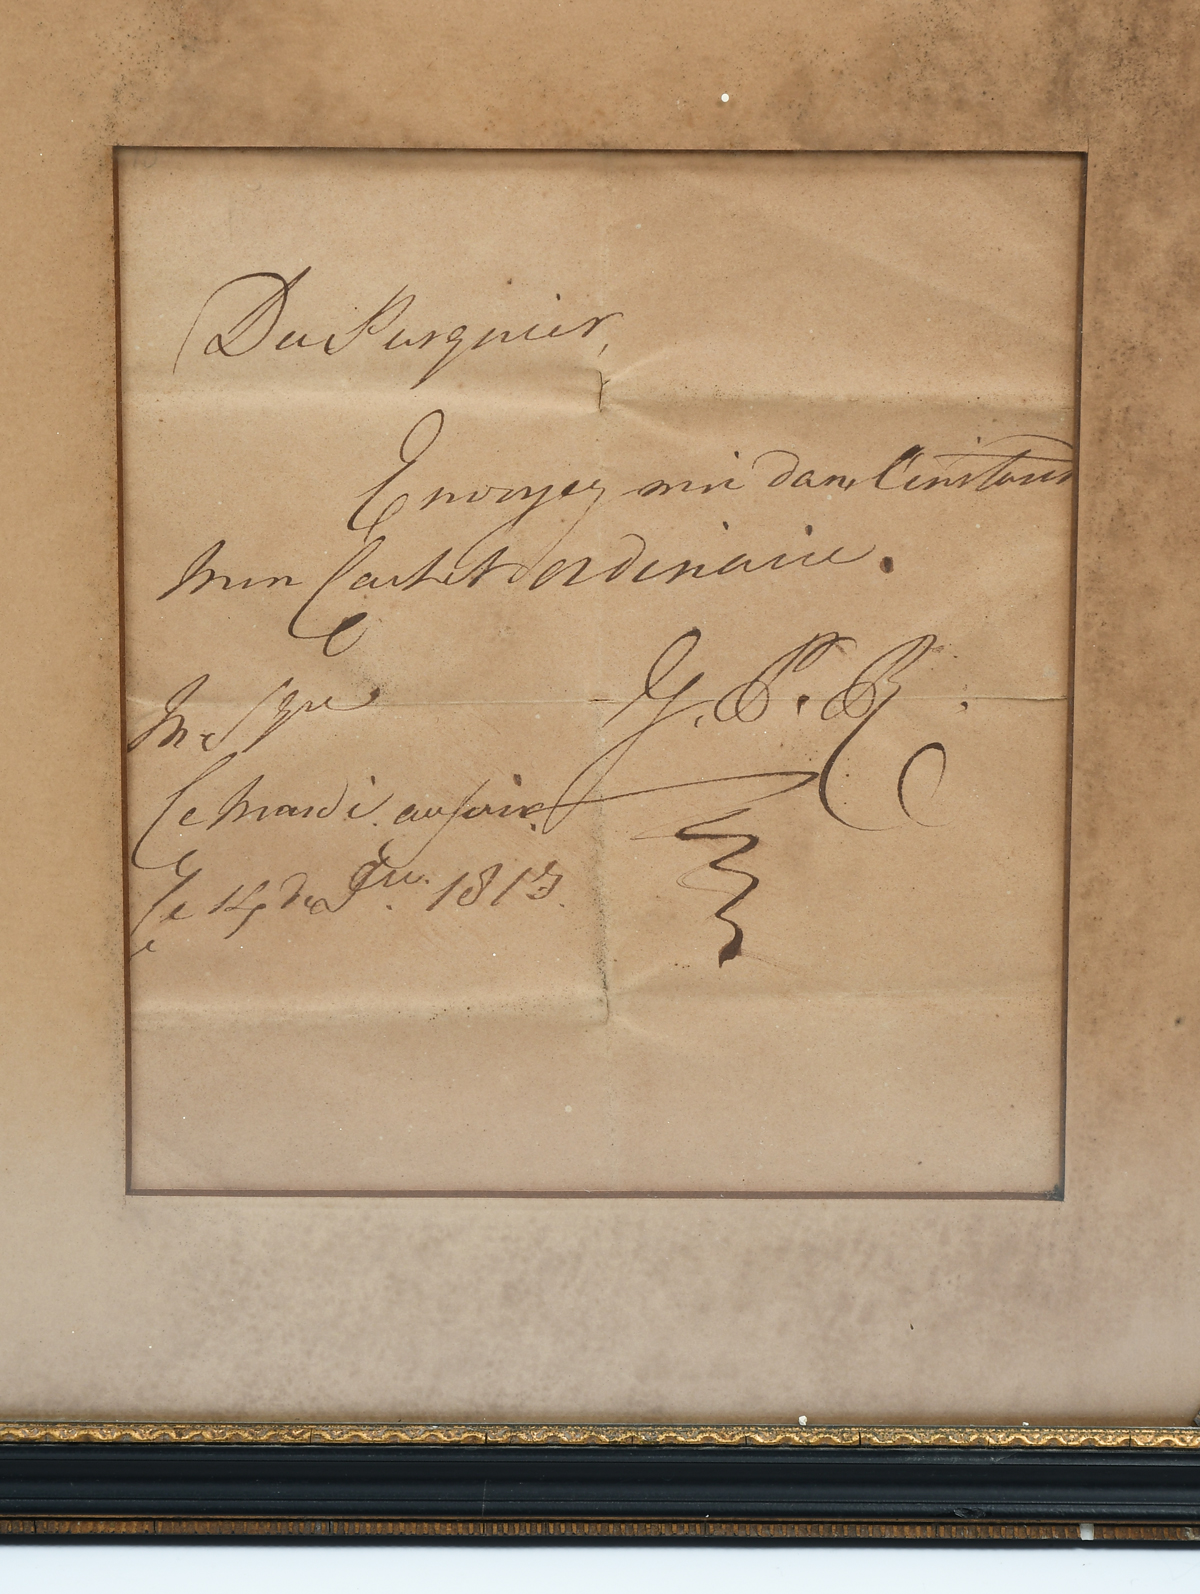 DuPasquier,
Envoyez moi dans l'instant
mon Cachet ordinaire.
G. P. R.
Ce Mardi au soir.
Le 14 1813.